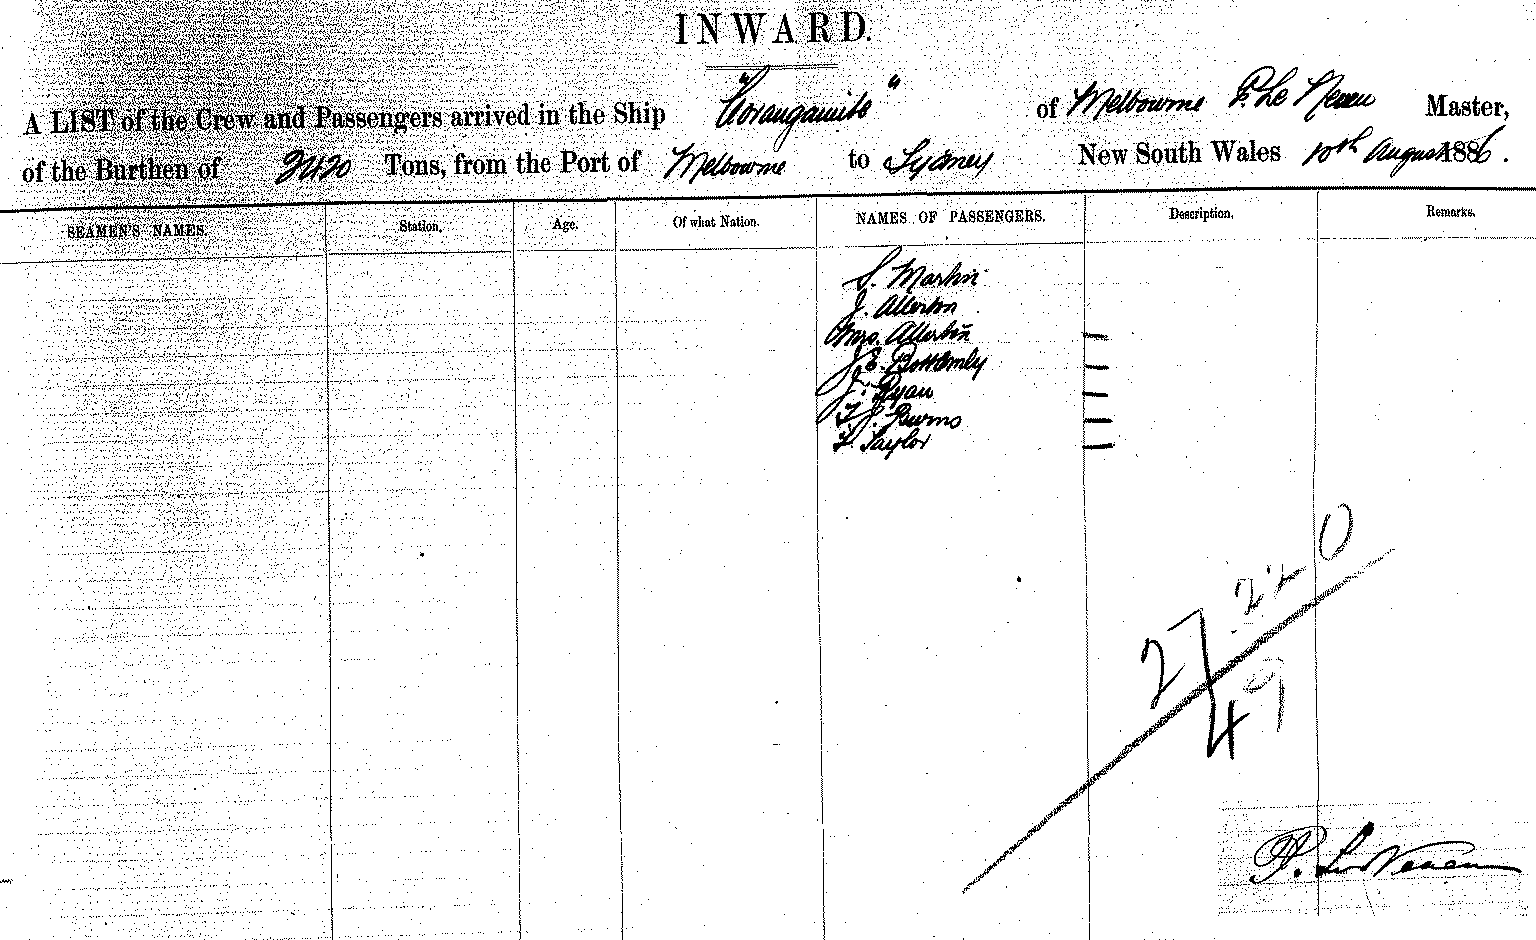 INWARD.
A LIST of the Crew and Passengers arrived in the Ship "Corangamite" of Melbourne P. Le Neveu Master,
of the Burthen of Tons, from the Port of Melbourne to Sydney New South Wales 10th August 1886.
SEAMEN'S NAMES. Station. Age. Of what Nation. NAMES OF PASSENGERS. Description. Remarks.
S. Martin
J. Allerton
Mrs. Allerton
J. E. Bottomly
J. Ryan
T. J.
F. Taylor
0
27
49
P. Le Neveu